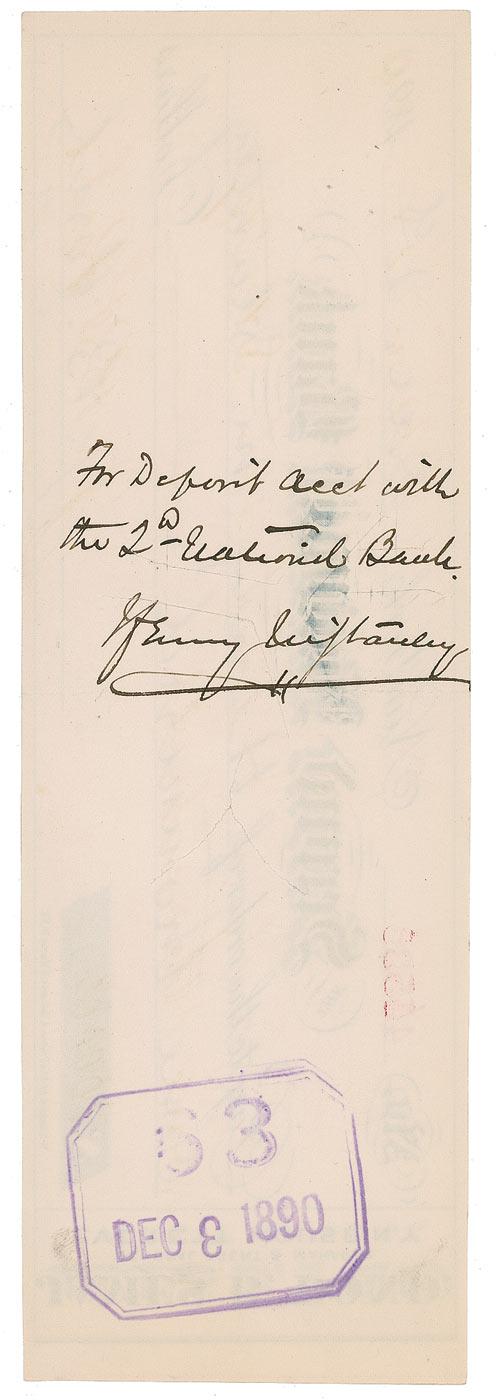 For Deposit acct with
the 2d National Bank.
Henry M Stanley
63
DEC 3 1890